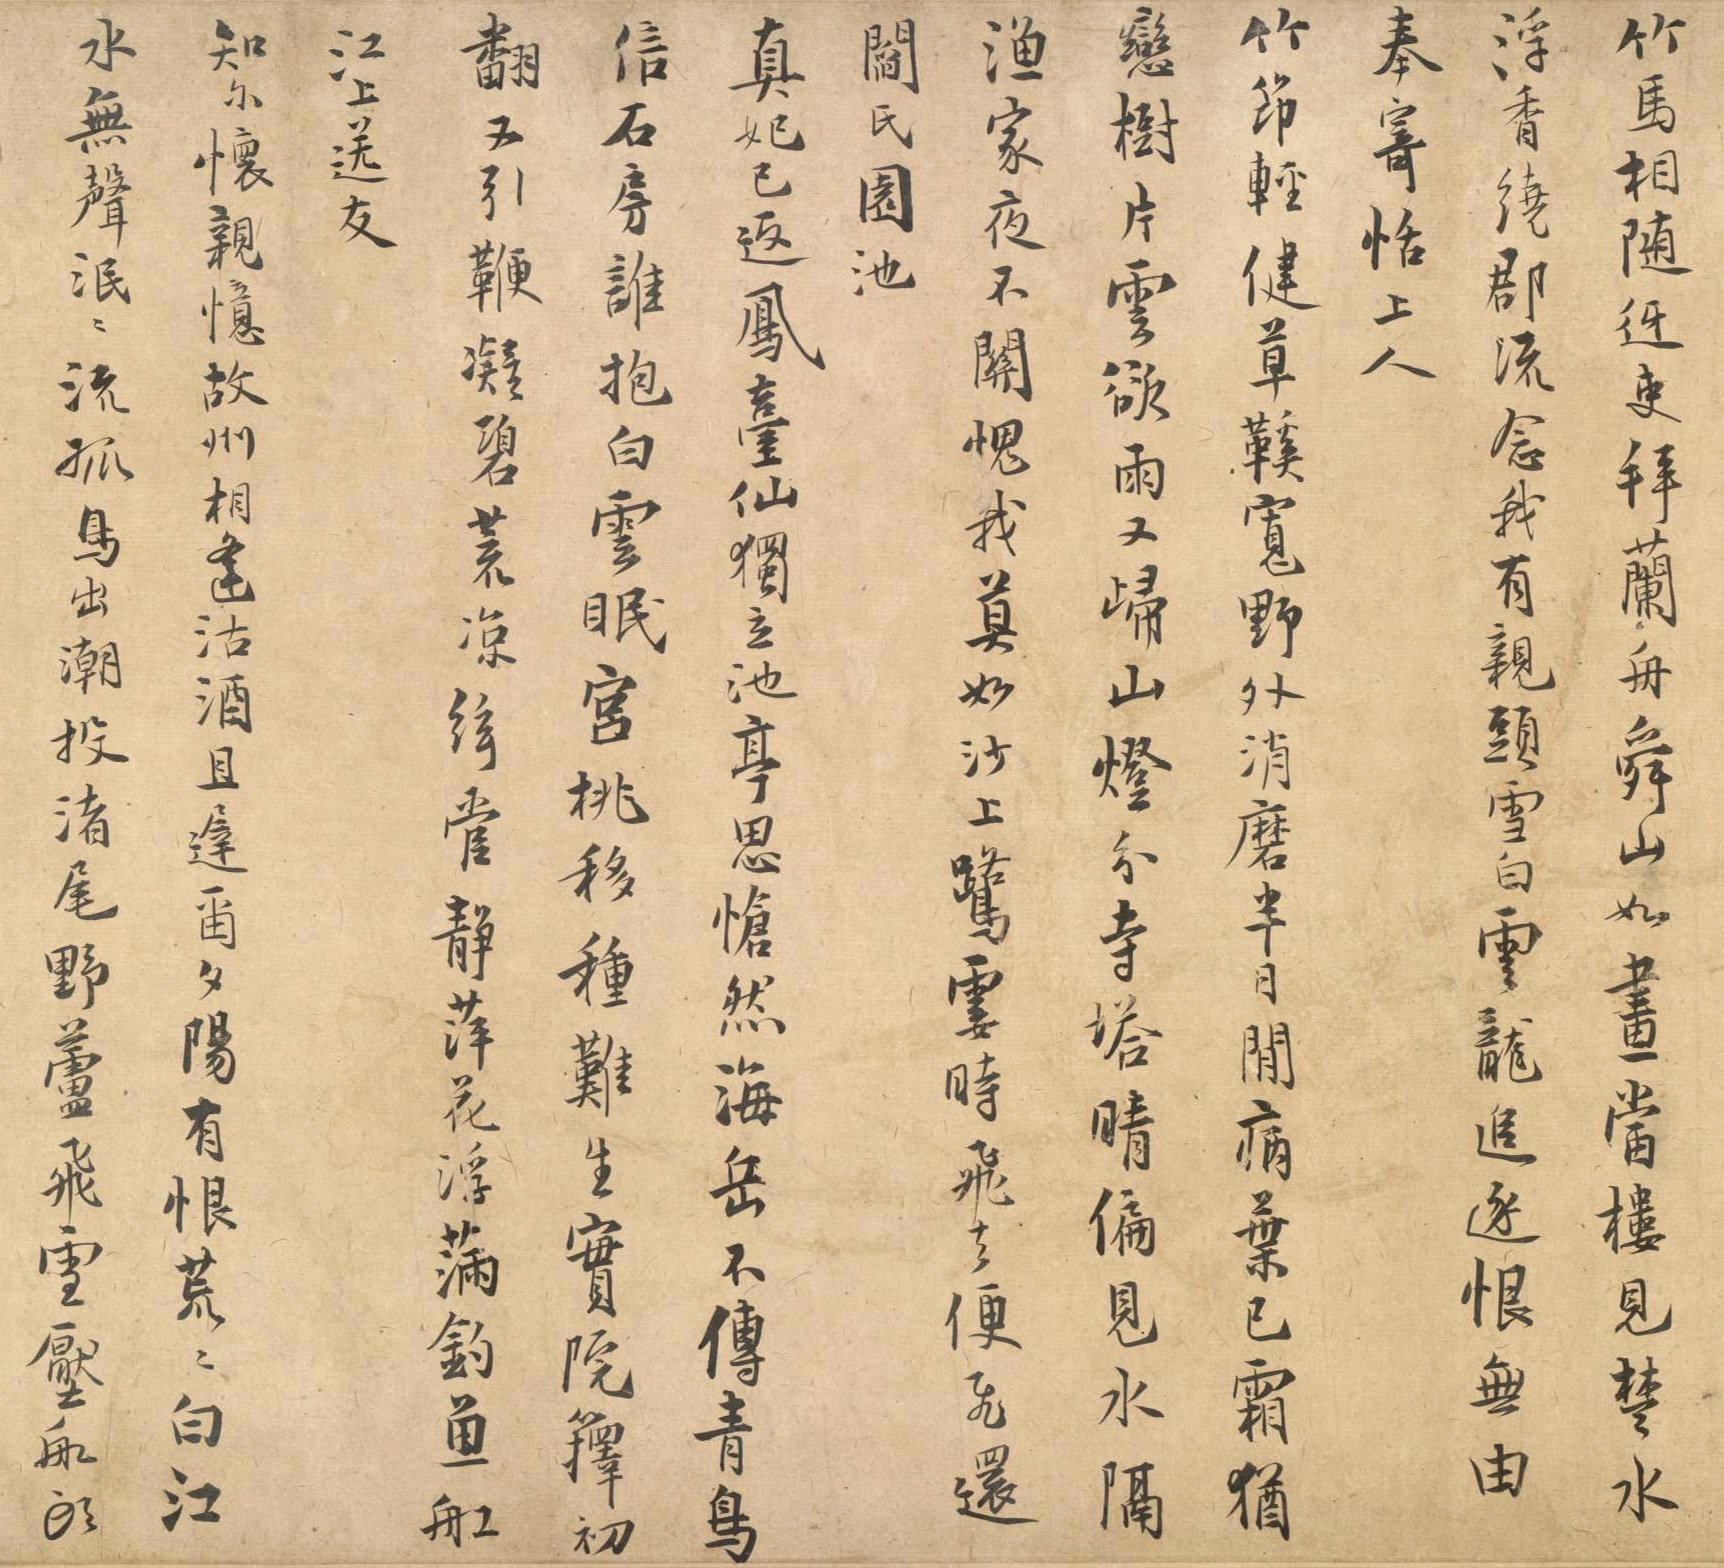 竹馬相随迓吏拜蘭舟舜山如畫當樓見楚水
浮香繞郡流念我有親頭雪白雲龍追逐恨無由
奉寄恬上人
竹節輕健草鞵寬野外消磨半日閒病葉已霜猶
戀樹片雲欲雨又歸山燈分寺塔晴偏見水隔
漁家夜不關愧我莫如沙上鷺霎時飛去便飛還
閻氏園池
真妃已返鳳臺仙獨立池亭思愴然海岳不傳青鳥
信石房誰抱白雲眠宮桃移種難生實院籜初
翻又引鞭凝碧荒凉絃管靜萍花浮滿釣魚舡
江上送友
知尔懷親憶故州相逢沽酒且遲畱夕陽有恨荒〻白江
水無聲泯〻流孤鳥出潮投渚尾野蘆飛雪壓船頭